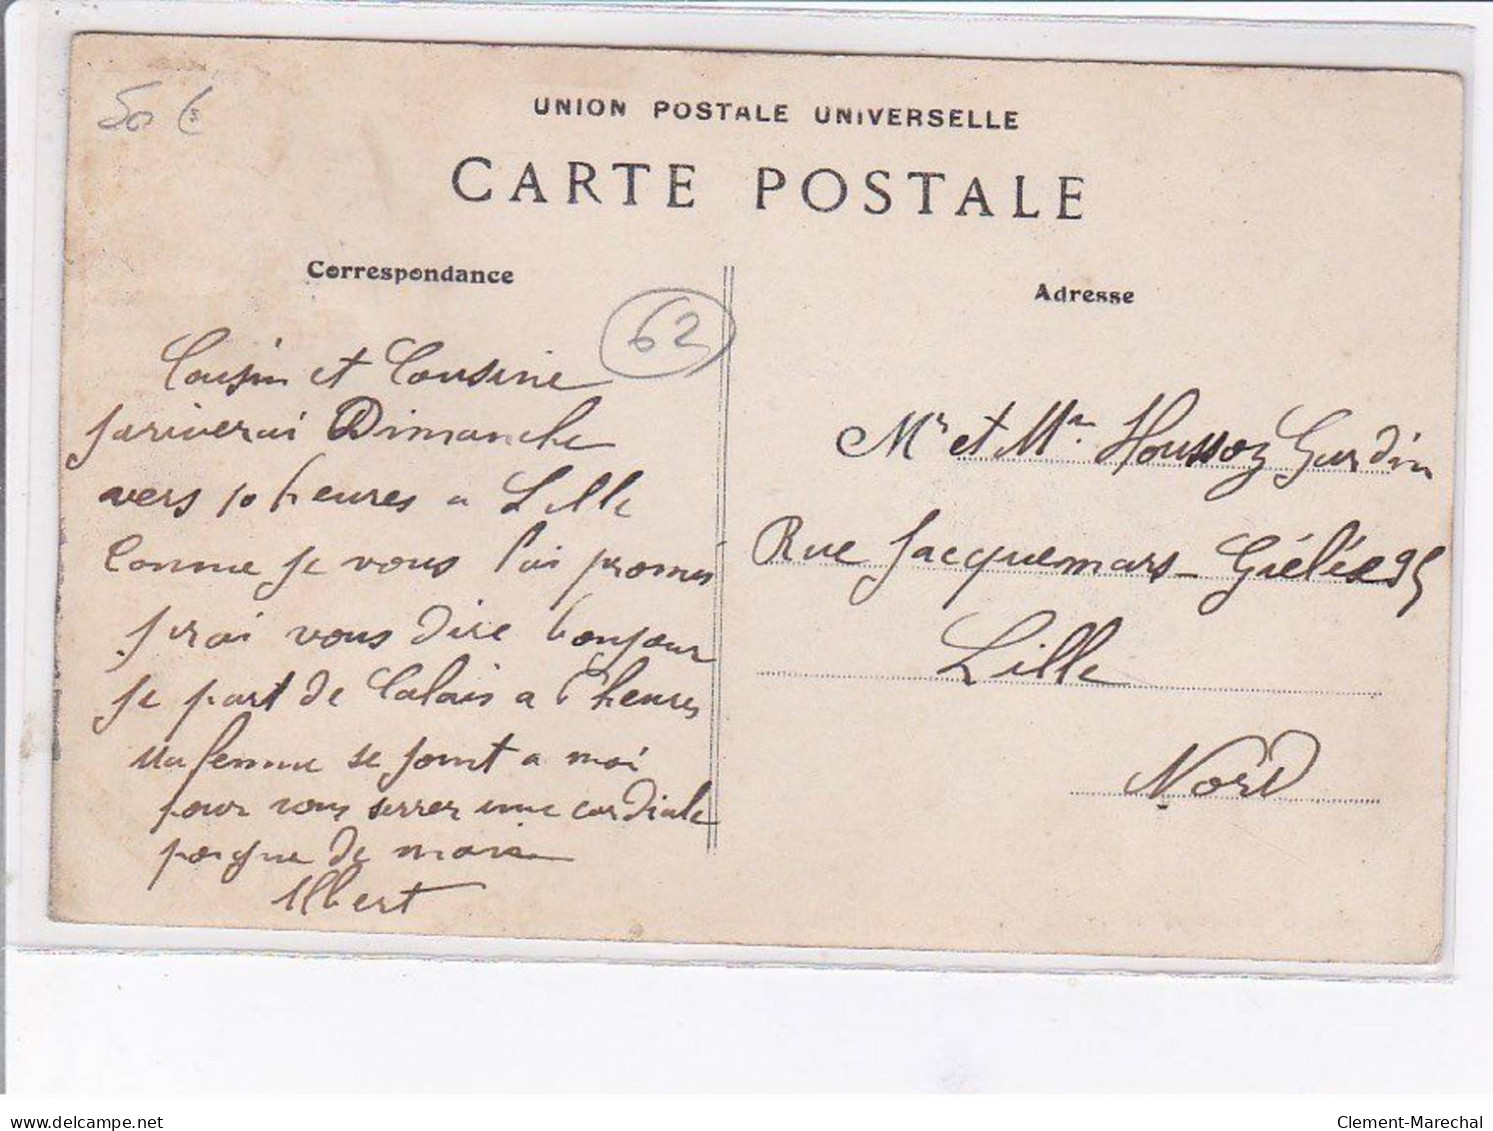 50 €
UNION POSTALE UNIVERSELLE
CARTE POSTALE
Correspondance
62
Cousin et Cousine
J'ariverai Dimanche
vers 10 heures a Lille
Comme je vous l'ai promis
j'irai vous dire bonjour
je part de Calais a 6 heures
Ma femme se joint a moi
pour vous serrer une cordiale
poigne de main
Albert
Adresse
Mr et Mme Houssoz Gurdin
Rue Jacquemars-Giélée 95
Lille
Nord
www.delcampe.net
Clement-Marechal